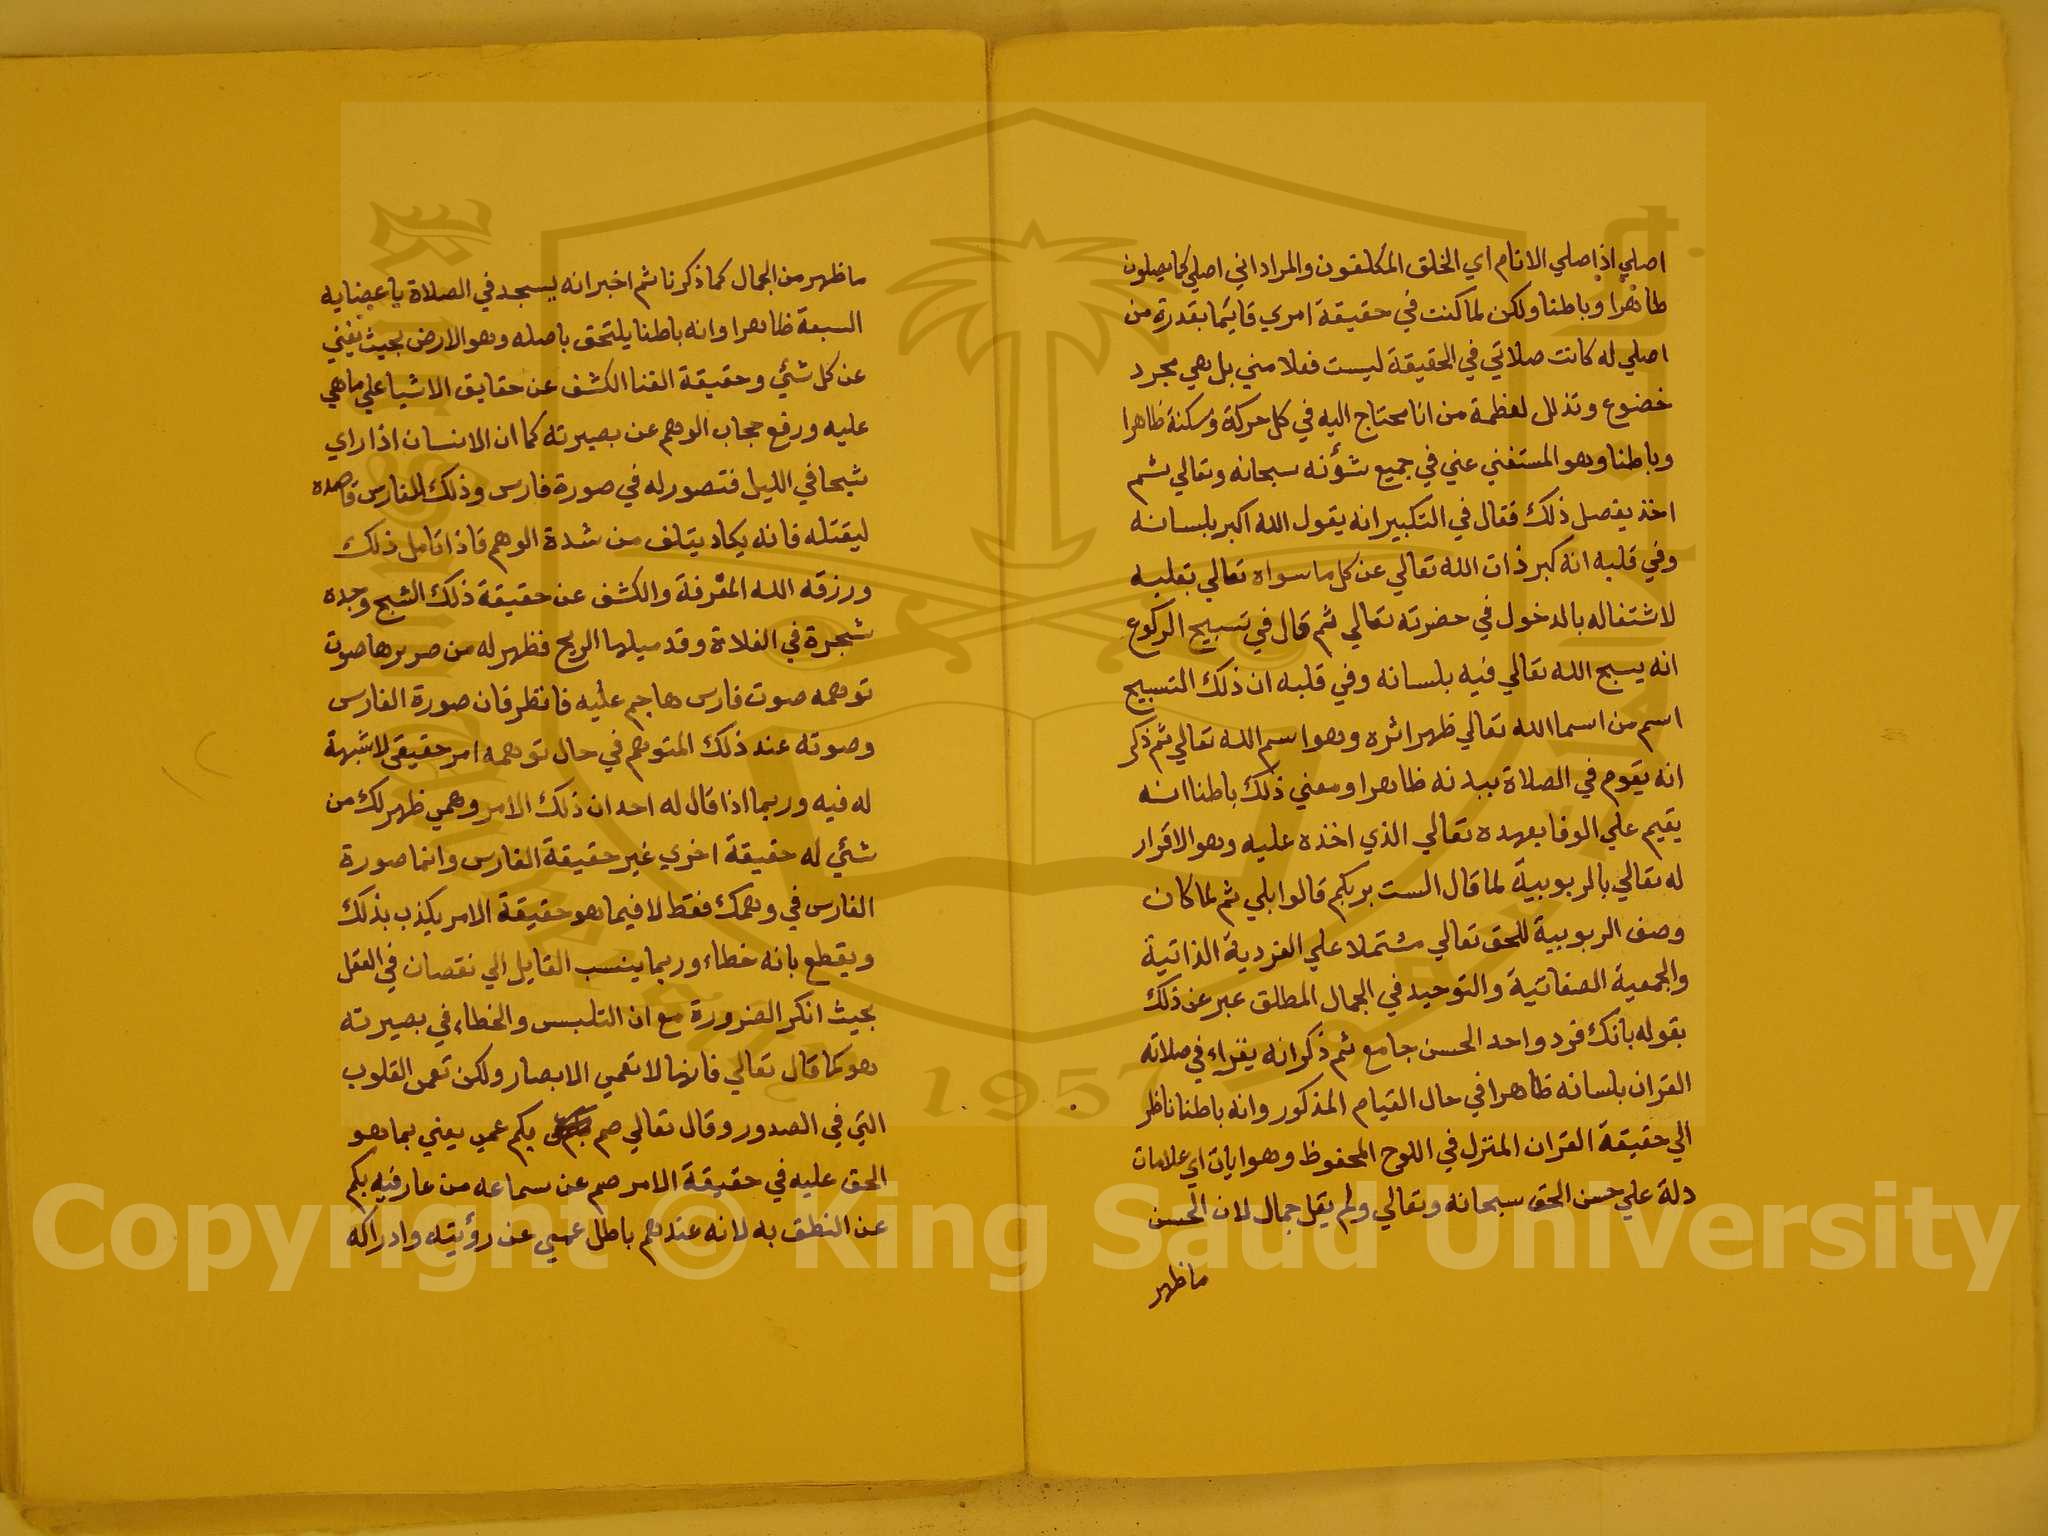 اصلي اذا صلي الانام اي الخلق المكلفون والمراد اني اصلي كما يصلون
ظاهرا وباطنا ولكن لما كنت في حقيقة امري قايما بقدرة من
اصلي له كانت صلاتي في الحقيقة ليست فعلا مني بل هي مجرد
خضوع وتذلل لعظمة من انا محتاج اليه في كل حركة وسكنة ظاهرا
وباطنا وهو المستغني عني في جميع شؤنه سبحانه وتعالي ثم
اخذ يفصل ذلك فقال في التكبير انه يقول الله اكبر بلسانه
وفي قلبه انه كبر ذات الله تعالي عن كل ما سواه تعالي بقلبه
لاشتغاله بالدخول في حضرته تعالي ثم قال في تسبيح الركوع
انه يسبح الله تعالي فيه بلسانه وفي قلبه ان ذلك التسبيح
اسم من اسما الله تعالي ظهر اثره وهو اسم الله تعالي ثم ذكر
انه يقوم في الصلاة ببدنه ظاهرا ومعني ذلك باطنا انه
يقيم علي الوفا بعهده تعالي الذي اخذه عليه وهو الاقرار
له تعالي بالربوبية لما قال الست بربكم قالوا بلي ثم لما كان
وصف الربوبية للحق تعالي مشتملا علي الفردية الذاتية
والجمعية الصفاتية والتوحيد في الجمال المطلق عبر عن ذلك
بقوله بانك فرد واحد الحسن جامع ثم ذكر انه يقراء في صلاته
القران بلسانه ظاهرا في حال القيام المذكور وانه باطنا ناظر
الي حقيقة القران المنزل في اللوح المحفوظ وهو ايات اي علامات
دلة علي حسن الحق سبحانه وتعالي ولم يقل جمال لان الحسن
ما ظهر
ما ظهر من الجمال كما ذكرنا ثم اخبر انه يسجد في الصلاة باعضايه
السبعة ظاهرا وانه باطنا يلتحق باصله وهو الارض بحيث يفني
عن كل شئي وحقيقة الفنا الكشف عن حقايق الاشيا علي ما هي
عليه ورفع حجاب الوهم عن بصيرته كما ان الانسان اذا راي
شبحا في الليل فتصور له في صورة فارس وذلك الفارس قاصده
ليقتله فانه يكاد يتلف من شدة الوهم فاذا تامل ذلك
ورزقه الله المعرفة والكشف عن حقيقة ذلك الشبح وجده
شجرة في الفلاة وقد ميلها الريح فظهر له من صريرها صوت
توهمه صوت فارس هاجم عليه فانظر فان صورة الفارس
وصوته عند ذلك المتوهم في حال توهمه امر حقيقي لا شبهة
له فيه وربما اذا قال له احد ان ذلك الامر وهمي ظهر لك من
شئي له حقيقة اخري غير حقيقة الفارس وانما صورة
الفارس في وهمك فقط لا فيما هو حقيقة الامر يكذب بذلك
ويقطع بانه خطاء وربما ينسب القايل الي نقصان في العقل
بحيث انكر الضرورة مع ان التلبس والخطاء في بصيرته
هو كما قال تعالي فانها لا تعمي الابصار ولكن تعمي القلوب
التي في الصدور وقال تعالي صم بكم عمي يعني بما هو
الحق عليه في حقيقة الامر صم عن سماعه من عارفيه بكم
عن النطق به لانه عندهم باطل عمي عن رؤيته وادراكه
1957
Copyright © King Saud University